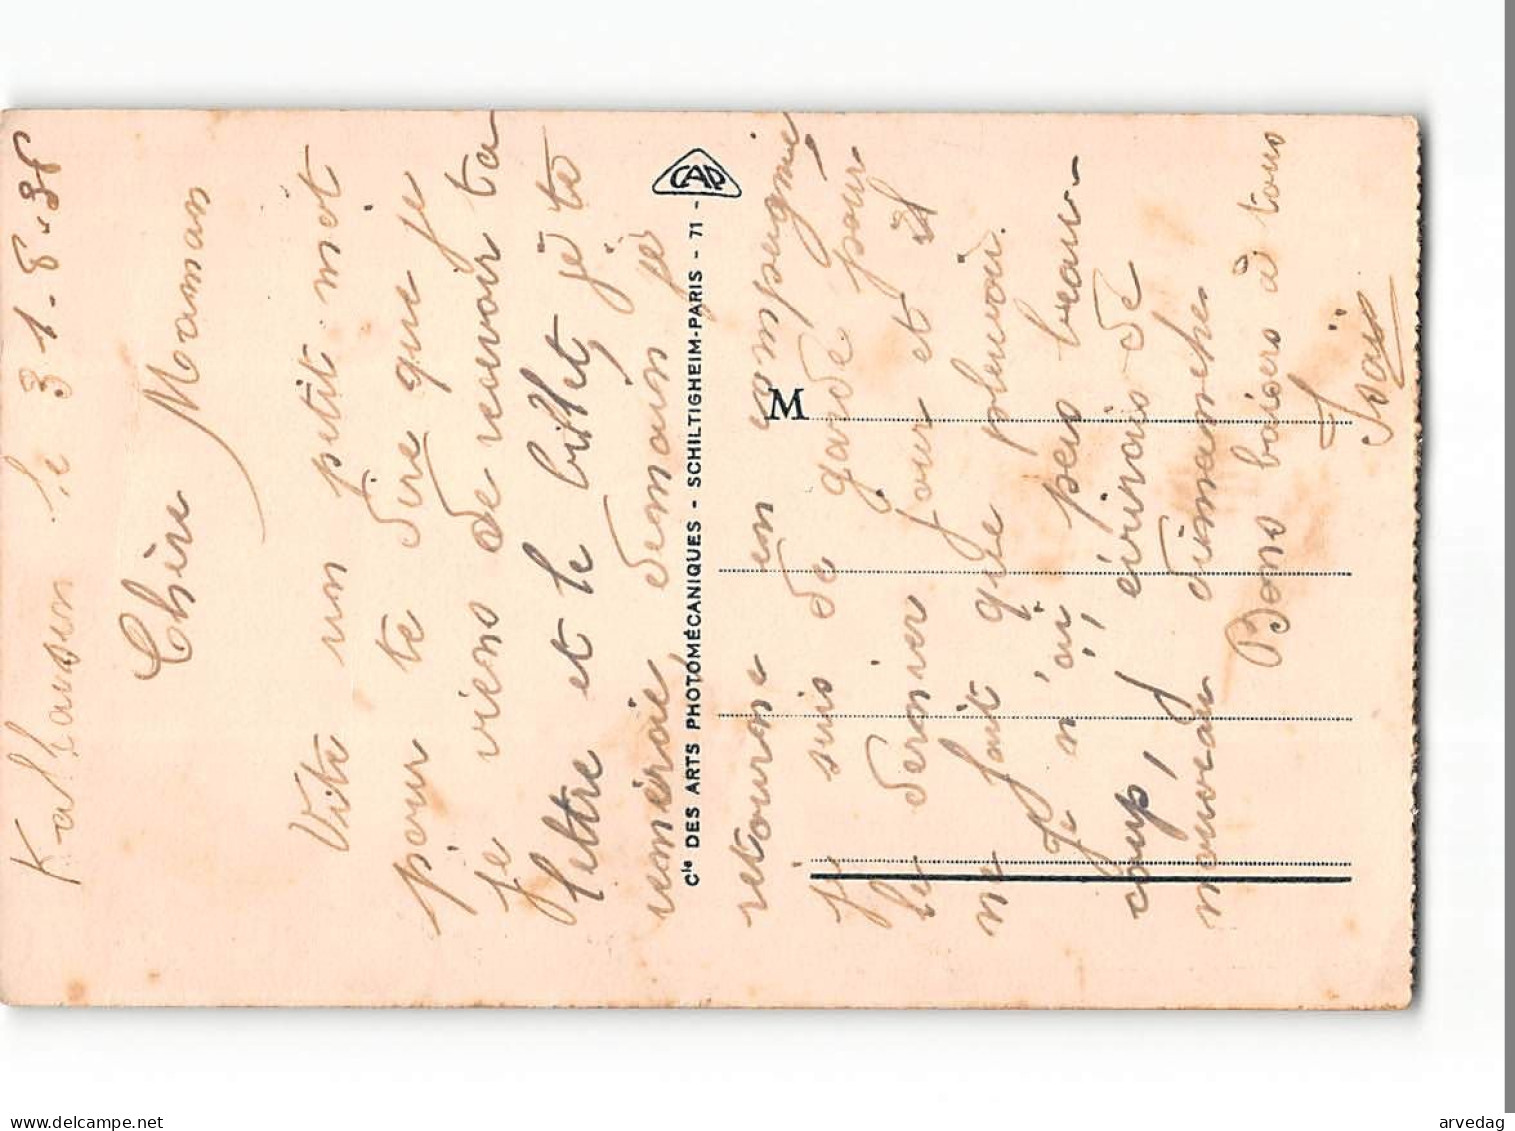 Kalhausen le 31-8-38
Chère Maman
Vite un petit mot
pour te dire que je
je viens de recevoir ta
lettre et le billet, je te
remercie, demain je
retourne en campagne
je suis de garde pour
le dernier jour et il
ne fait que pleuvoir.
Je n'ai pas beau-
coup, j'écrirais de
nouveau dimanche
Bons baisers à tous
M
Cie DES ARTS PHOTOMÉCANIQUES - SCHILTIGHEIM-PARIS - 71 -
CAP
delcampe.net
arvedag